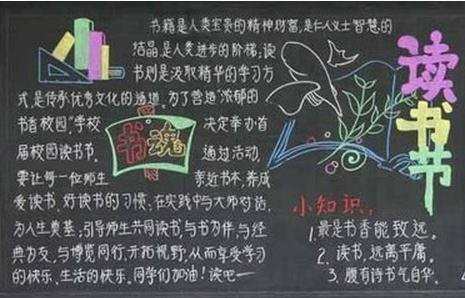 书籍是人类宝贵的精神财富,是仁人义士智慧的
结晶是人类进步的阶梯;读
书则是汲取精华的学习方
式,是传承优秀文化的通道。为了营造“浓郁的
书香校园”,学校 决定举办首
届校园读书节。 通过活动,
要让每一位师生 亲近书本,养成
爱读书、好读书的习惯,在实践中与大师对话,
为人生奠基;引导师生共同读书,与书为伴,与经
典为友,与博览同行,开拓视野,从而享受学习
的快乐、生活的快乐。同学们加油!读吧——
书魂
读书节
小知识:
1.最是书香能致远。
2.读书,远离平庸。
3.腹有诗书气自华。